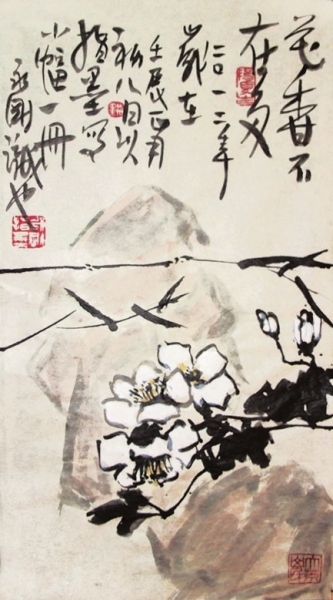 花香不
在多
二〇一二年
岁在
壬辰正月
初八日以
指墨写
小幅一册
识也